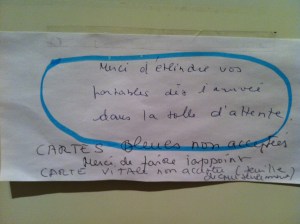 Merci d'éteindre vos
portables dès l'arrivée
dans la salle d'attente
CARTES Bleues non acceptées
Merci de faire l'appoint
CARTE VITALE non acceptée (feuille